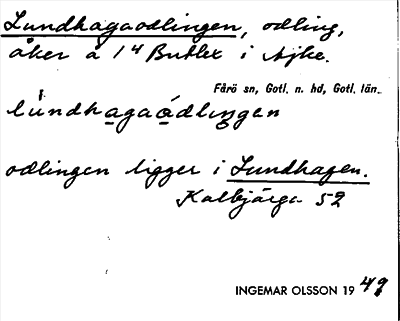 Lundhagaodlingen, odling,
åker å 1⁴ Butlex i Ajke.
Fårö sn, Gotl. n. hd, Gotl. län.
lùndhagaódlingen
odlingen ligger i Lundhagen.
Kalbjärga 52
INGEMAR OLSSON 1949